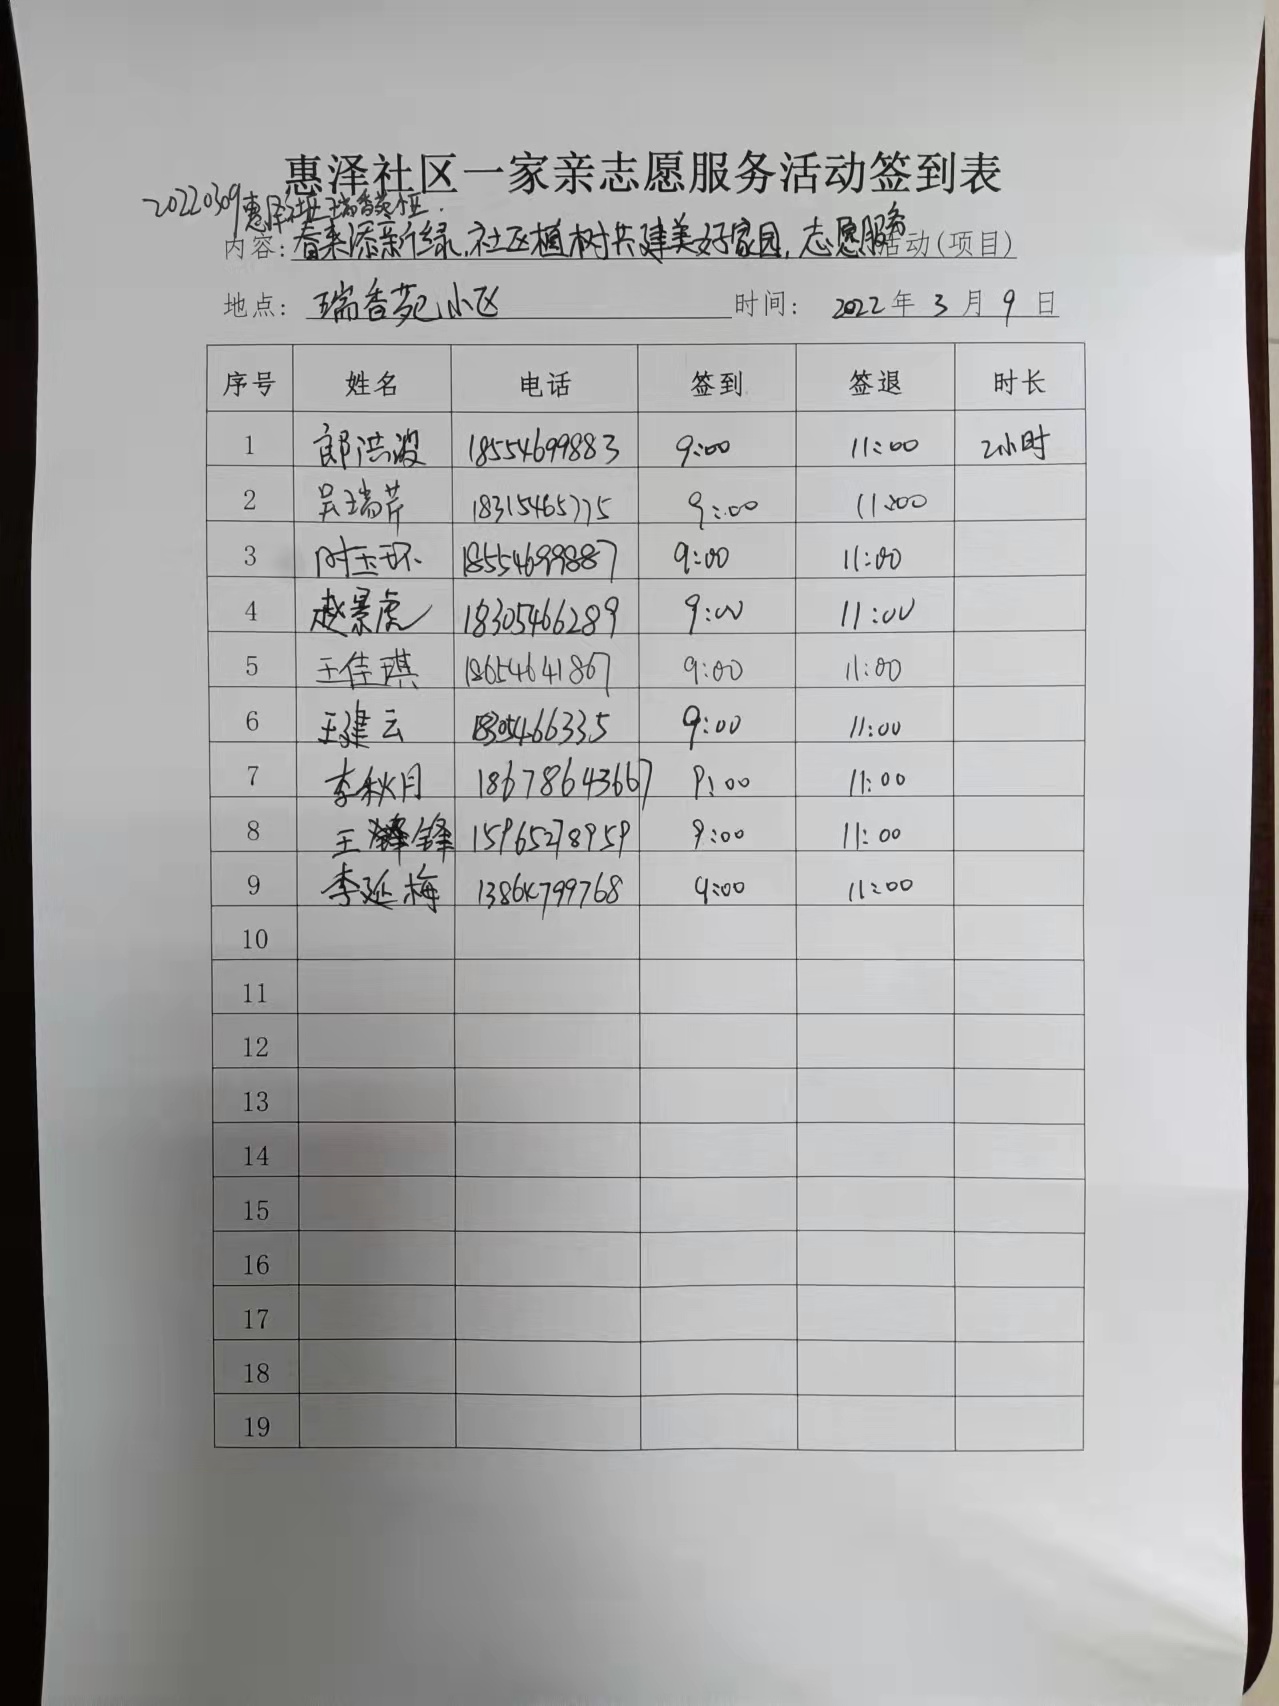 惠泽社区一家亲志愿服务活动签到表
20220309惠泽社区瑞香苑小区.
内容:春来添新绿,社区植树共建美好家园,志愿服务活动(项目)
地点:瑞香苑小区 时间:2022年3月9日
序号 姓名 电话 签到 签退 时长
1 郎洪波 18554699883 9:00 11:00 2小时
2 吴瑞芹 18315465775 9:00 11:00
3 时玉环 18554699887 9:00 11:00
4 赵景虎 18305466289 9:00 11:00
5 王佳琪 18654641867 9:00 11:00
6 王建云 1805466335 9:00 11:00
7 李秋月 18678643667 9:00 11:00
8 王锋 15965278959 9:00 11:00
9 李延梅 9:00 11:00
10
11
12
13
14
15
16
17
18
19